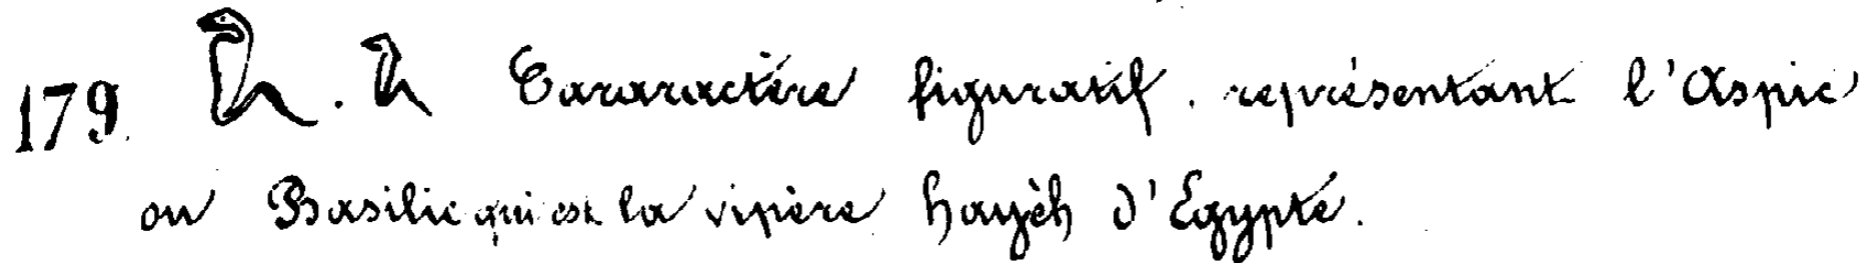 179. 𓆓. 𓆓 Cararactère figuratif. représentant l'Aspic
ou Basilic qui est la vipère hayèh d'Egypte.